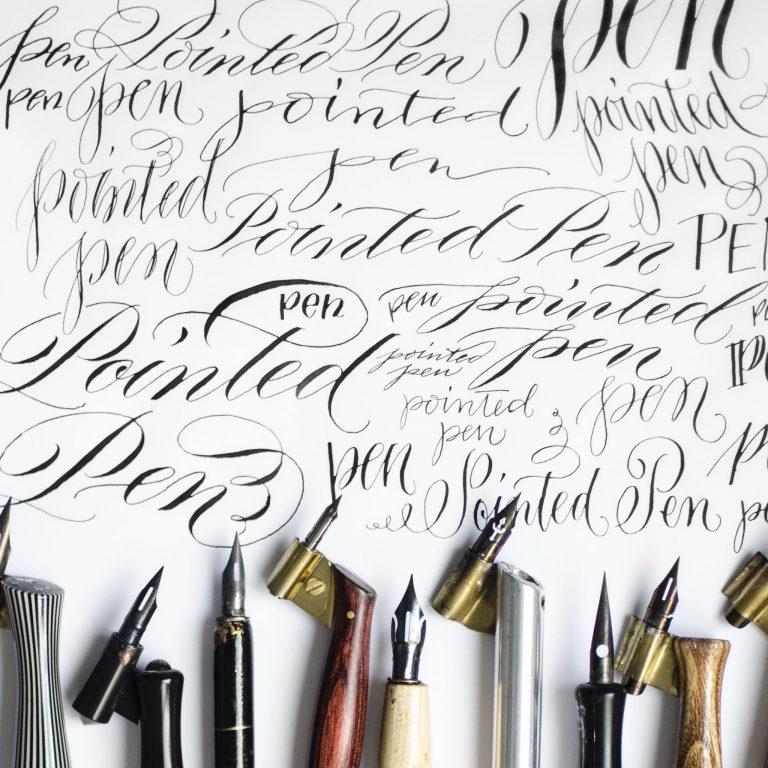 pen Pointed Pen pen
pen pen pointed pointed
pen
pointed pen
pen
Pointed Pen PEN
pen pen pointed
pen
Pointed pointed
pen
pointed
pen pen
Pen pen Pointed Pen